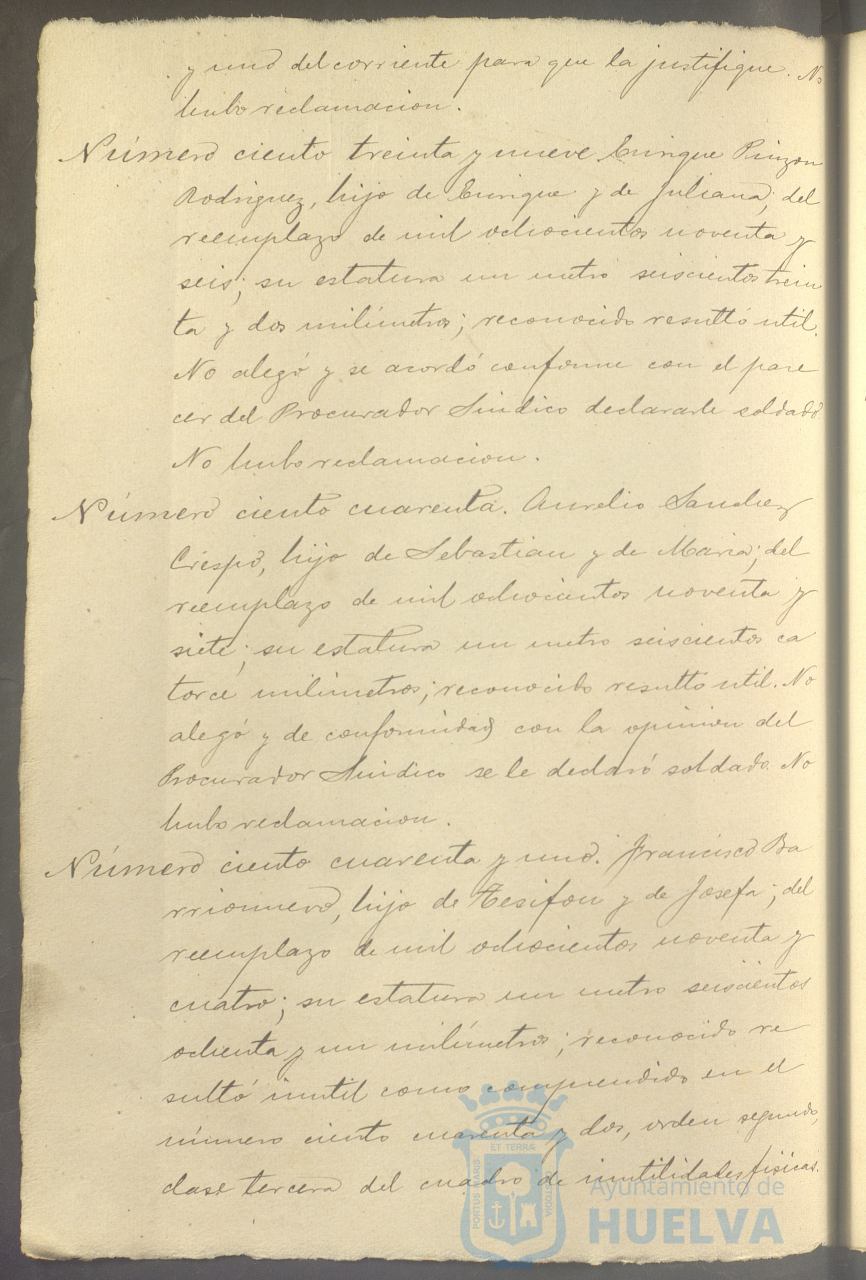 y uno del corriente para que la justifique. No
hubo reclamacion.
Número ciento treinta y nueve Enrique Pinzon
Rodriguez, hijo de Enrique y de Juliana; del
reemplazo de mil ochocientos noventa y
seis; su estatura un metro seiscientos trein
ta y dos milímetros; reconocido resultó util.
No alegó y se acordó conforme con el pare
cer del Procurador Síndico declararle soldado.
No hubo reclamacion.
Número ciento cuarenta. Aurelio Sanchez
Crespo, hijo de Sebastian y de Maria; del
reemplazo de mil ochocientos noventa y
siete; su estatura un metro seiscientos ca
torce milímetros; reconocido resultó util. No
alegó y de conformidad con la opinion del
Procurador Síndico se le declaró soldado. No
hubo reclamacion.
Número ciento cuarenta y uno. Francisco Ba
rrionuevo, hijo de Tesifon y de Josefa; del
reemplazo de mil ochocientos noventa y
cuatro; su estatura un metro seiscientos
ochenta y un milímetros; reconocido re
sultó inutil como comprendido en el
número ciento cuarenta y dos, orden segundo,
clase tercera del cuadro de inutilidades físicas.
PORTUS MARIS ET TERRÆ CUSTODIA
Ayuntamiento de
HUELVA